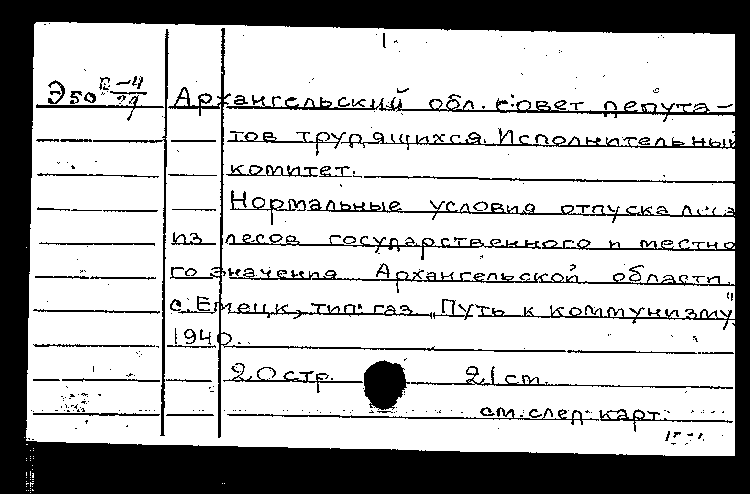 Э50 В-4/29
Архангельский обл. совет депута-
тов трудящихся. Исполнительный
комитет.
Нормальные условия отпуска леса
из лесов государственного и местно
го значения Архангельской области.
с. Емецк, тип. газ. „Путь к коммунизму"
1940.
20 стр. 21 см.
см. след. карт.